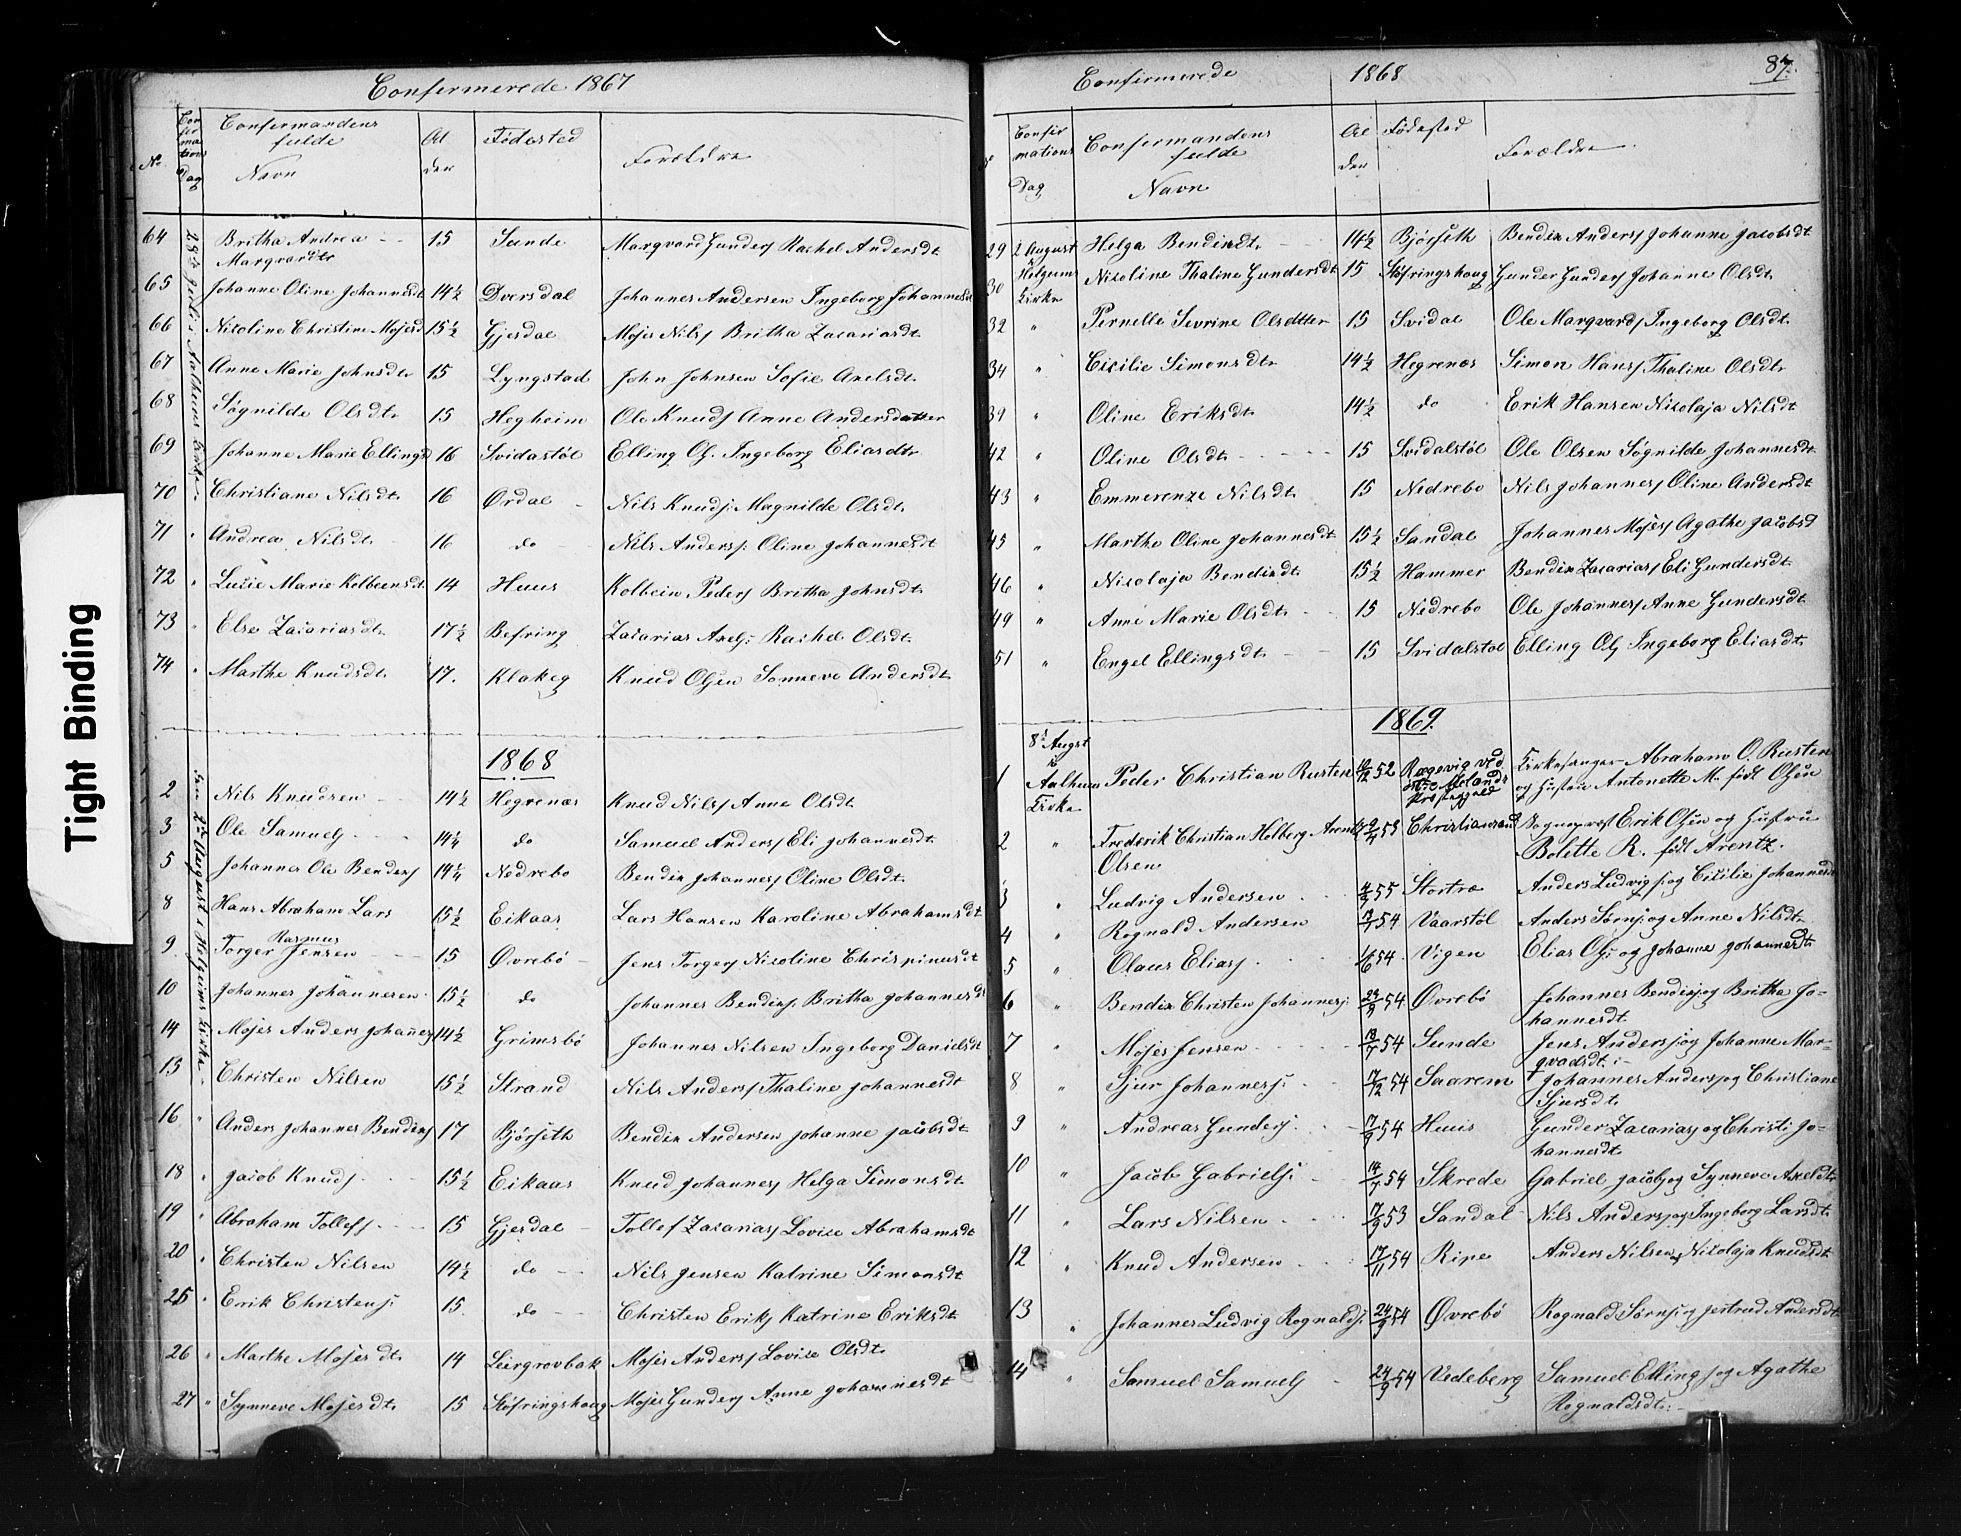 Tight Binding
Confermerede 1867
No. Confermations Dag Confermandens fulde Navn Alder Födested Forældre
28de Juli i Aalhuus Kirke
64 Britha Andrea Marqvardtr 15 Sunde Marqvard Gunders Rachel Andersdt
65 Johanne Oline Johannesdt 14½ Dversdal Johannes Andersen Ingeborg Johannesdt
66 Nicoline Christine Mosesd 15½ Gjesdal Moses Nils Britha Zacariasdt
67 Anne Marie Johnsdtr 15 Lyngstad John Johnsen Sofie Axelsdt
68 Søgnilde Olsdtr 15 Hegheim Ole Knuds Anne Andersdatter
69 Johanne Marie Ellingsd 16 Svidastøl Elling Ols. Ingeborg Eliasdtr
70 Christiane Nilsdt. 16 Ørdal Nils Knuds: Magnilde Olsdt.
71 " Andrea Nilsdt 16 do Nils Anders: Oline Johannesdt
72 " Lucie Marie Kolbeensdt. 14 Huus Kolbein Peders Britha Johnsdt.
73 " Else Zacariasdt. 17½ Befring Zacarias Axels: Rachel Olsdt.
74 " Marthe Knudsdt. 17. Klakeg Knud Olsen Sonneve Andersdt.
1868
den 2den August i Helgeims Kirke
2 Nils Knudsen 14½ Hegrenæs Knud Nils Anne Olsdt
3 Ole Samuels 14¼ do Samuel Anders Eli Johannesdt
5 Johannes Ole Bendixs 14¼ Nedrebo Bendix Johannes Oline Olsdt.
8 Hans Abraham Lars 15½ Eikaas Lars Hansen Karoline Abrahamsdt
9. Torger Rasmus Jensen 15 Øvrebö Jens Torgers Nicoline Chrispinusdt
10 Johannes Johannesen 15½ do Johannes Bendixs. Britha Johannesdt
14 Moses Anders Johannes 14½ Grimsbö Johannes Nilsen Ingeborg Danielsdt
15 Christen Nilsen 15½ Strand Nils Anders Thaline Johannesdt
16 " Anders Johannes Bendixs 17 Bjørseth Bendix Andersen Johanne Jacobsdt
18 " Jacob Knuds 15½ Eikaas Knud Johannes Helga Simonsdt
19 " Abraham Tollefs 15 Gjesdal Tollef Zacarias Lovise Abrahamsdt
20 " Christen Nilsen 14½ do Nils Jensen Katrine Simonsdt
25 " Erik Christens: 15. do Christen Eriks Katrine Eriksdt
26 " Marthe Mosesdt. 14 Leirgrovbak Moses Anders Lovise Olsdt.
27 " Synneve Mosesdt. 15 Støfringshaug Moses Gunders Anne Johannesdt
Confirmerede 1868 87.
Confirmations Dag Confermandens fulde Navn Alder Födested Forældre
29 2 August i Helgeims Kirke Helga Bendixdt. 14½ Bjørseth Bendix Anders Johanne Jacobsdt
30 Nicoline Thaline Gundersdt 15 Støfringshoug Gunder Gunders Johanne Olsdt.
32 " Pernelle Sevrine Olsdtter 15 Svidal Ole Marqvards Ingeborg Olsdt.
34 " Cicilie Simonsdt. 14½ Hegrenæs Simon Hans Thaline Olsdt.
39 " Oline Eriksdt. 14½ do Erik Hansen Nicolaja Nilsdt
42 " Oline Olsdt. 15 Svidalstøl Ole Olsen Søgnilde Johannesdt.
43 " Emmerenze Nilsdt. 15 Nedrebo Nils Johannes Oline Andersdt
45 " Marthe Oline Johannesdt 15½ Sandal Johannes Moses Agathe Jacobsd
46 " Nicolaja Bendixdt. 15½ Hammer Bendix Zacarias Eli Gundersdt.
49 " Anne Marie Olsdt. 15 Nedrebo Ole Johannes Anne Gundersdt.
51 " Engel Ellingsdt. 15 Svidalstøl Elling Ols Ingeborg Eliasdt.
1869.
8de Augst i Aalhuus Kirke
1 Peder Christian Rusten 10/12 52 Rægevig ved Præstegjeld Kirkesanger Abraham O. Rusten og Hustru Antonette M. født Olsen
2 " Frederik Christian Holberg Arentz Olsen 9/4 53 Christiansand Sognepræst Erik Olsen og Hustru Bolette R. født Arentz.
3 " Ludvig Andersen 4/9 55 Stortræ Anders Ludvigs og Cicilie Johannesdt
4 " Rognald Andersen 9/7 54 Vaarstøl Anders Sørns og Anne Nilsdt.
5 " Olaus Elias 1/6 54. Vigen Elias Ols: og Johanne Johannesdt.
6 " Bendix Christen Johannes: 29/9 54 Øvrebö Johannes Bendixs og Britha Johannesdt.
7 " Moses Jensen 13/7 54 Sunde Jens Anders og Johanne Marqvadsdt.:-
8 " Sjur Johannes: 17/12 54 Saarem Johannes Anders og Christiane Sjursdt.
9 " Andreas Gunders: 17/9 54 Huus Gunder Zacarias og Christi Johannesdt.
10 " Jacob Gabriels: 14/7 54 Skrede Gabriel Jacobs og Synneve Axeldt.
11 " Lars Nilsen 17/9 53 Sandal Nils Anders og Ingeborg Larsdt.
12 " Knud Andersen 17/11 54 Ripe Anders Nilsen og Nikolaja Knudsdt.
13 " Johannes Ludvig Rognalds: 24/9 54 Øvrebö Rognald Sørns: og Jertrud Andersdt.
14 " Samuel Samuels 24/9 54 Vedeberg Samuel Ellings og Agathe Rognaldsdt.:-